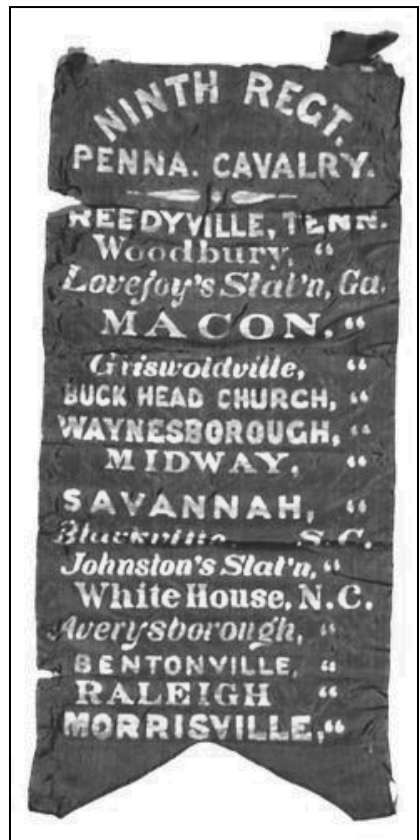 NINTH REGT.
PENNA. CAVALRY.
REEDYVILLE, TENN.
Woodbury, "
Lovejoy's Stat'n, Ga.
MACON. "
Griswoldville, "
BUCK HEAD CHURCH, "
WAYNESBOROUGH, "
MIDWAY, "
SAVANNAH, "
Blackville, S.C.
Johnston's Stat'n, "
White House, N.C.
Averysborough, "
BENTONVILLE, "
RALEIGH "
MORRISVILLE, "